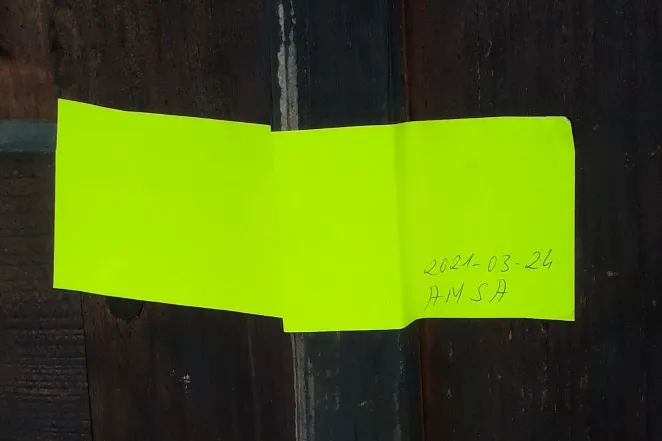 2021-03-24
AMSA